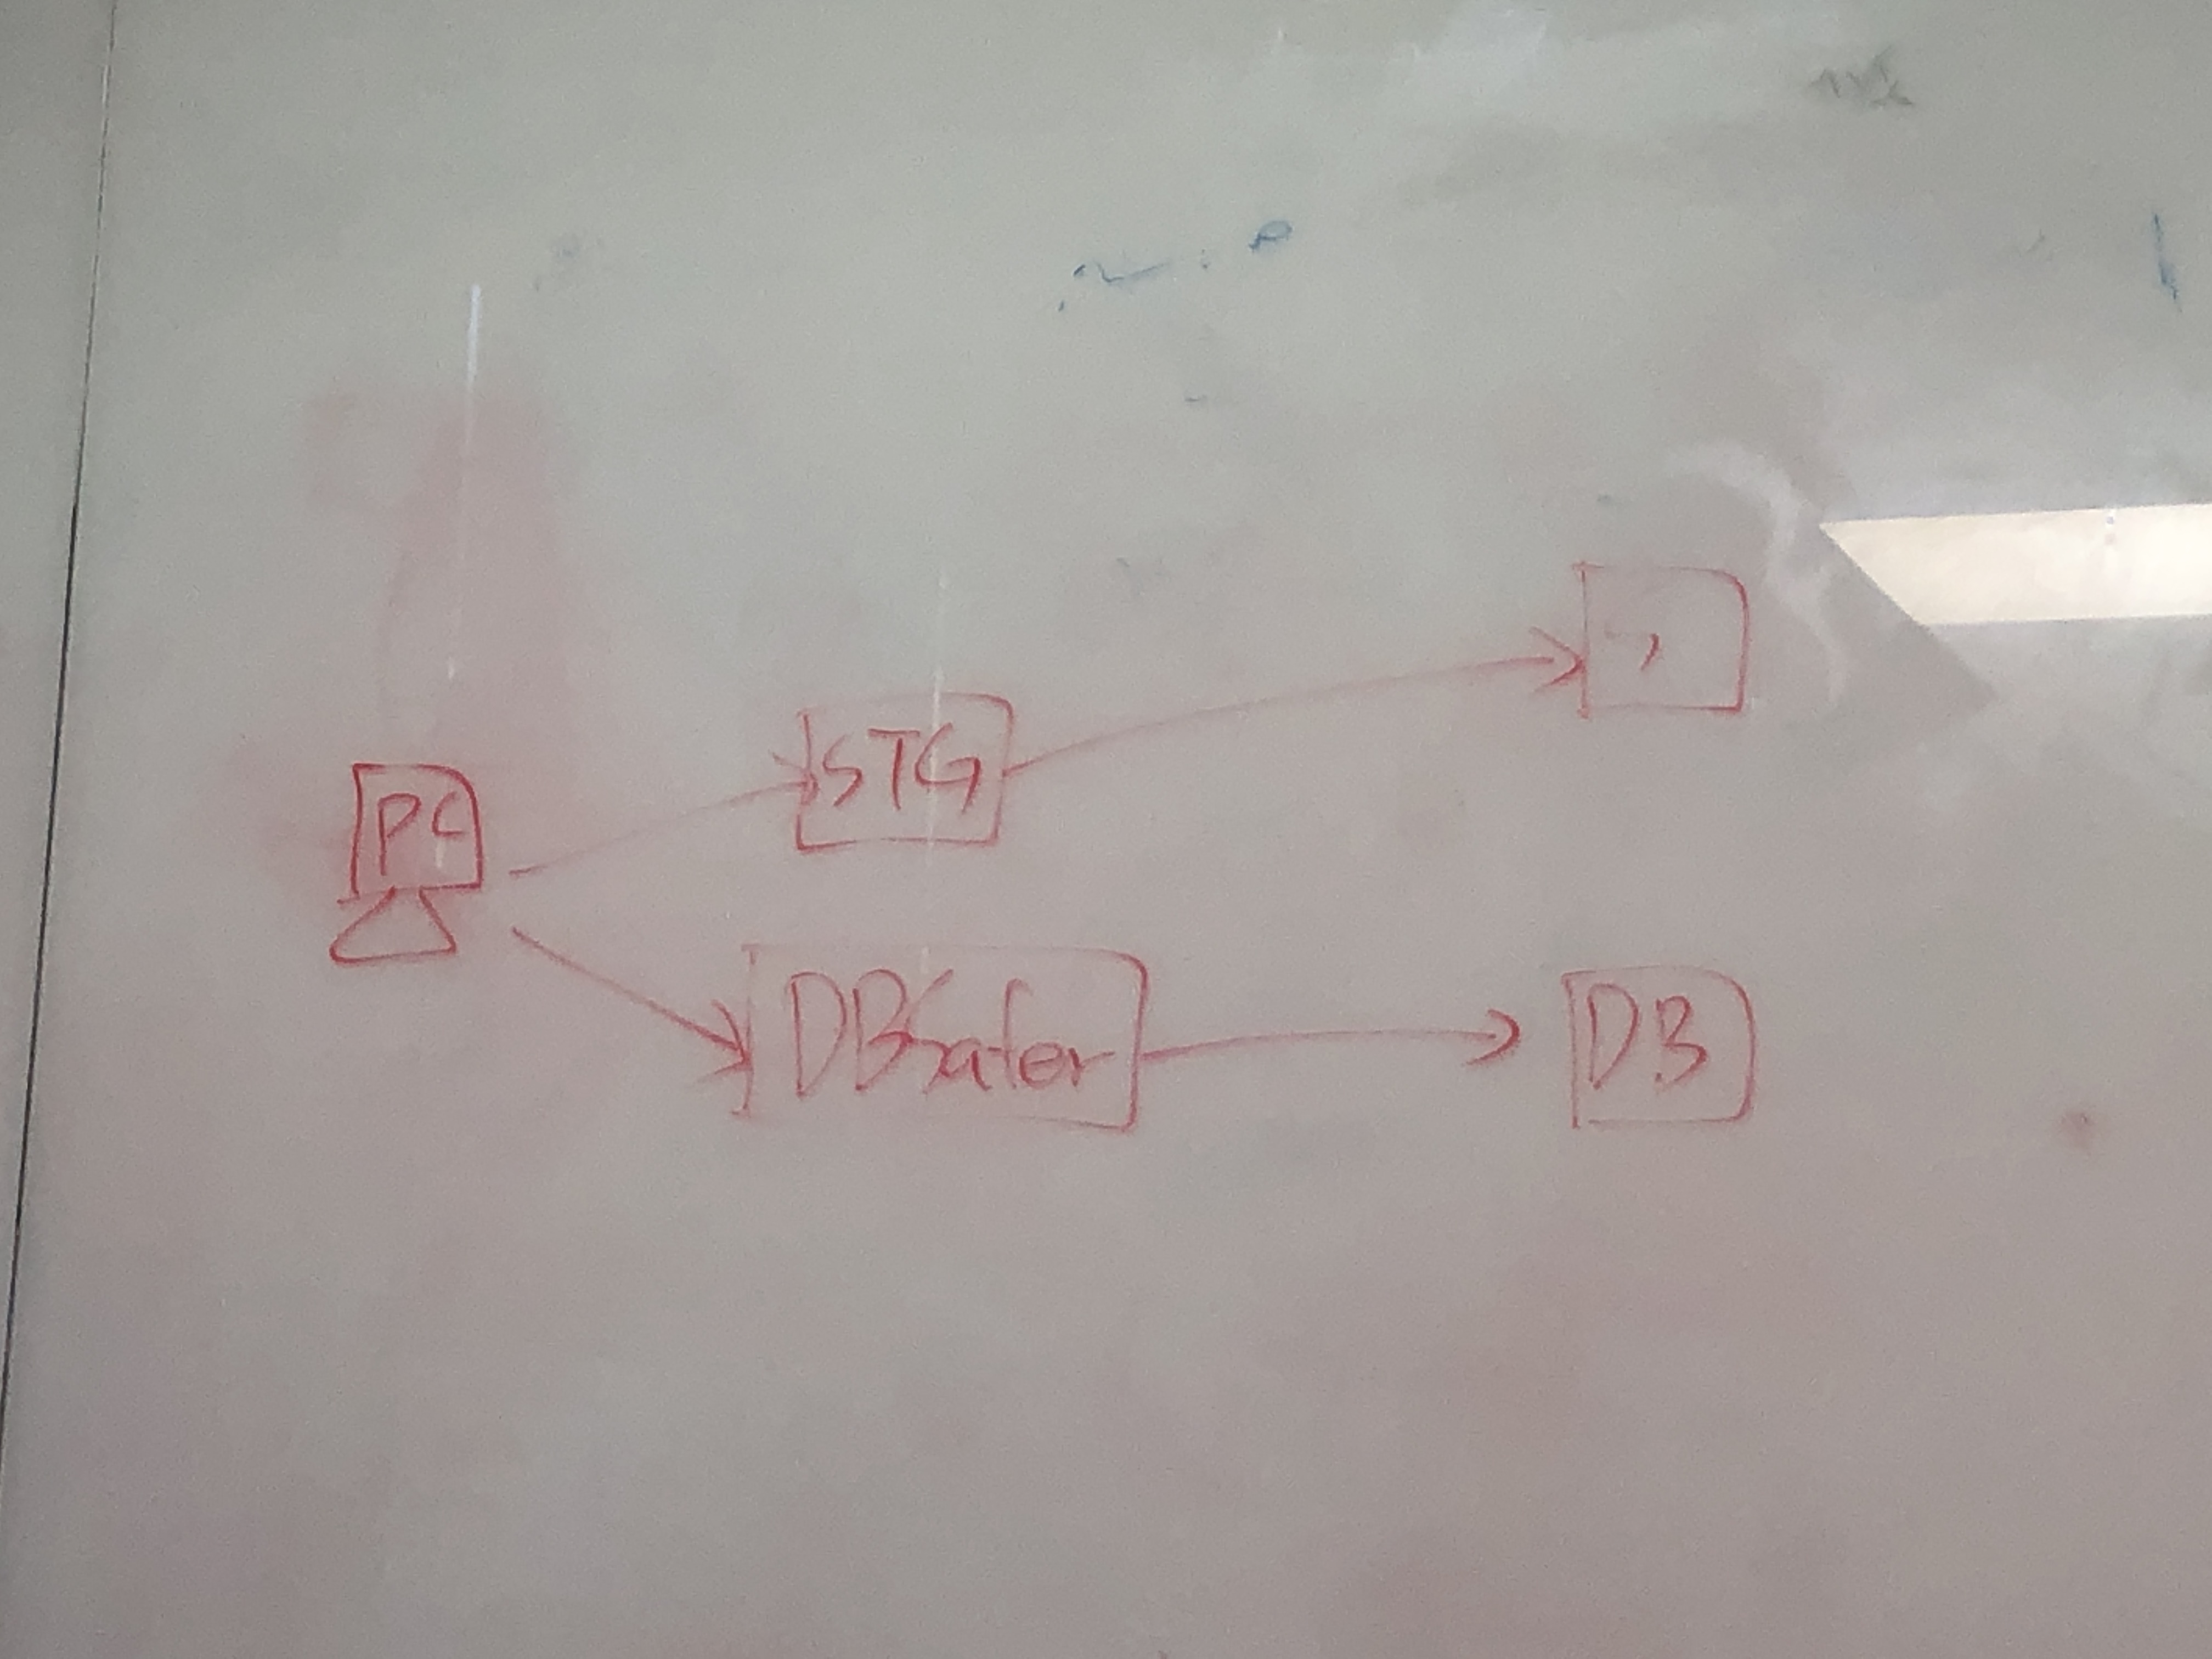 PC
STG
DBSafer
DB